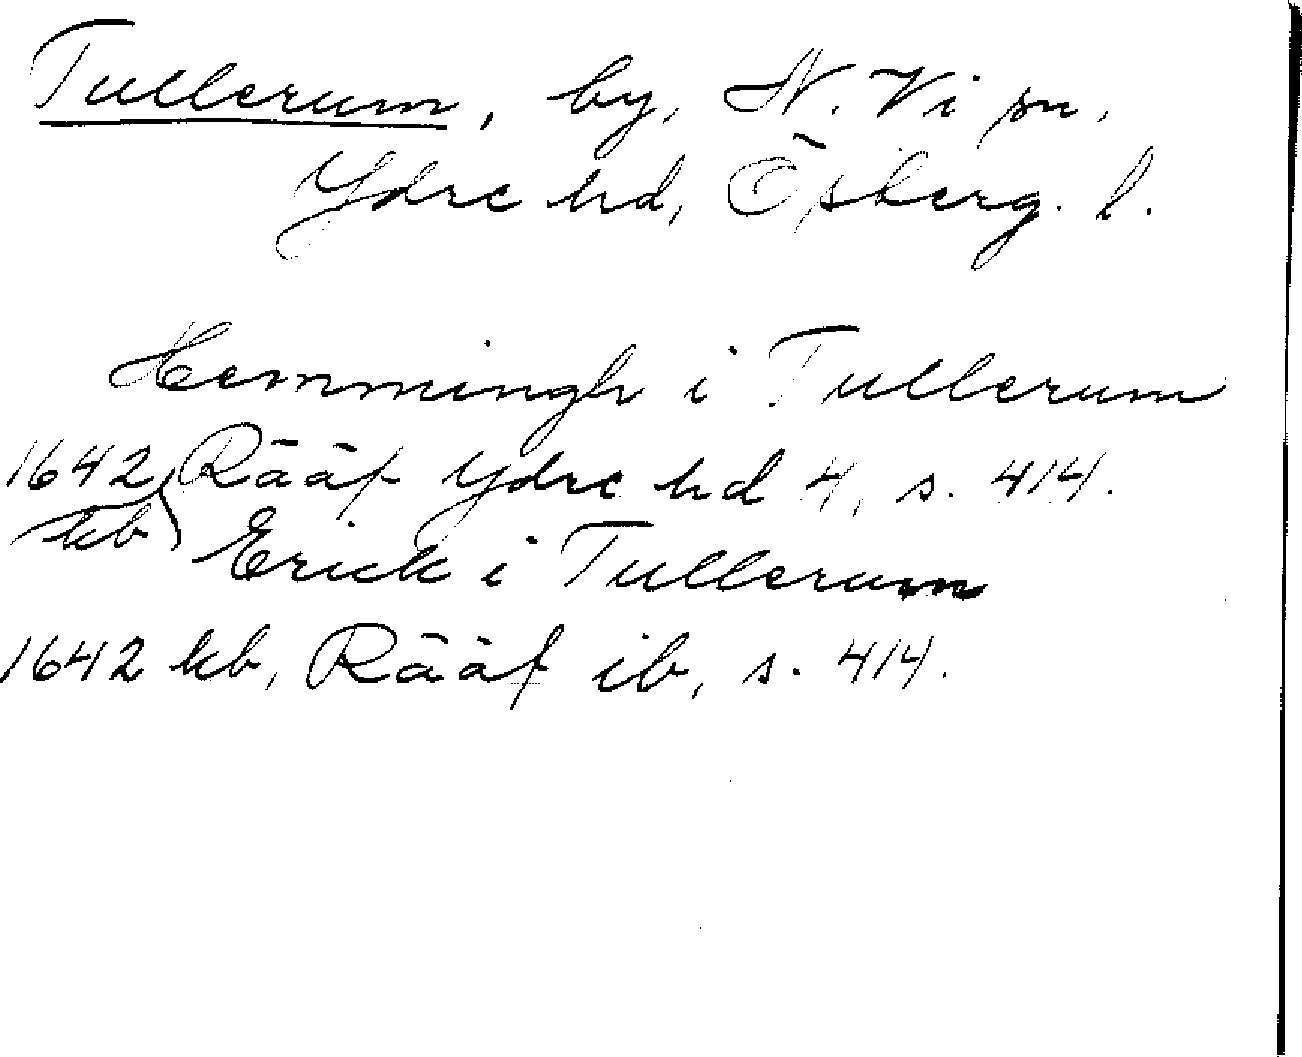 Tullerum, by, N. Vi sn,
Ydre hd, Ösberg. l.
Hemmingh i Tullerum
1642, Rääf Ydre hd 4, s. 414.
kb
Erick i Tullerum
1642 kb, Rääf ib, s. 414.